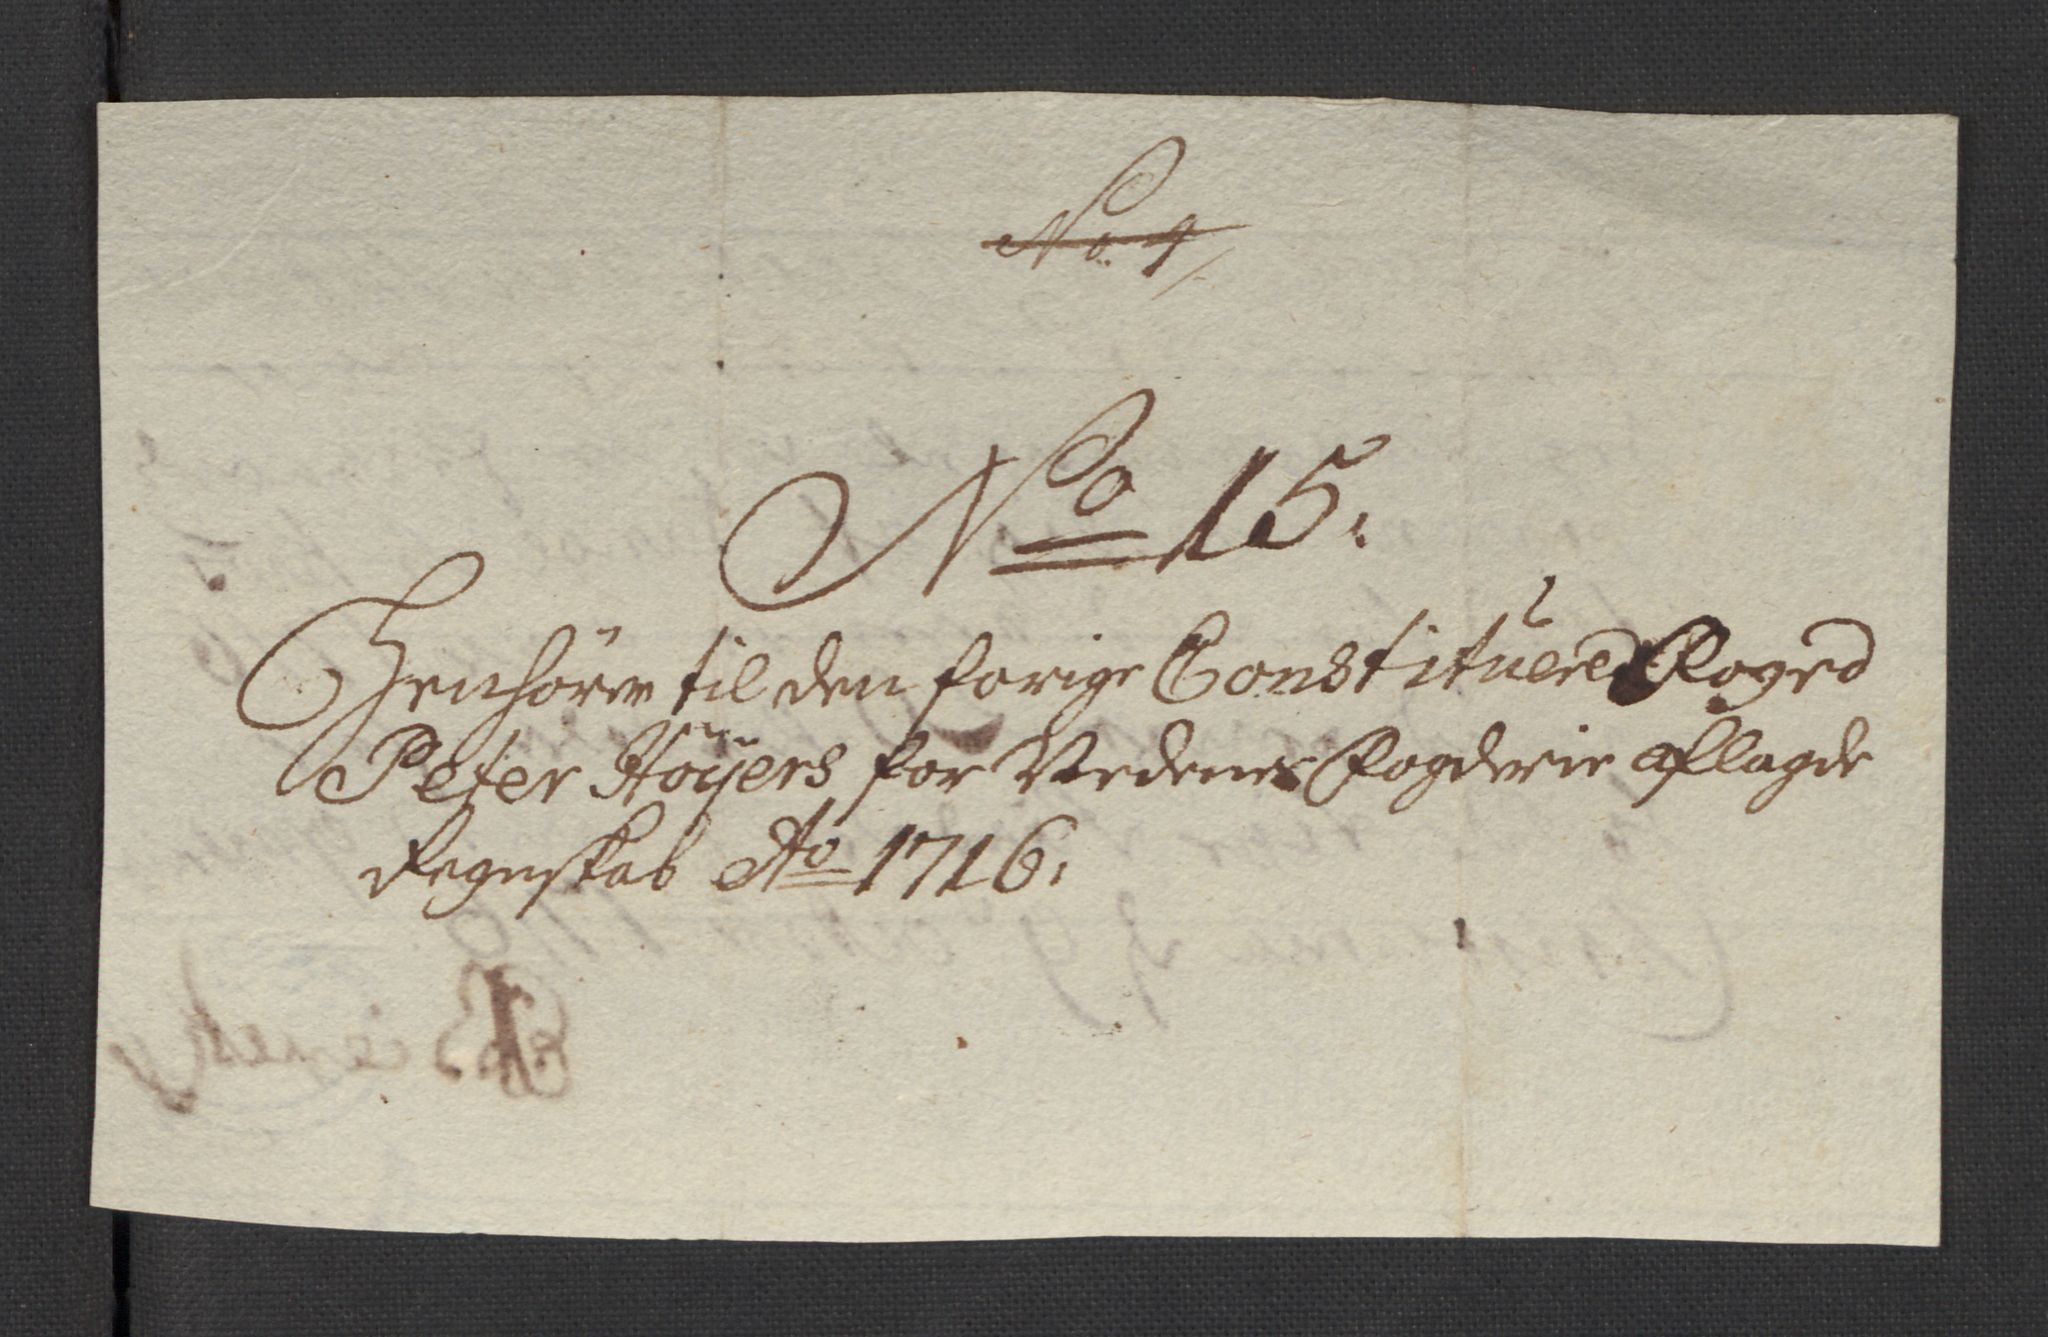 No 4
No 15.
Henhörer til den forige Constituered Foged
Peter Höÿers for Nedenes Fogderie aflagde
Regnskab Ao 1716.